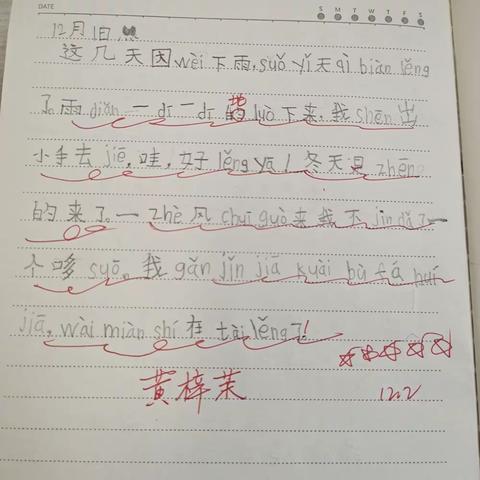 DATE S M T W T F S
12月1日
这几天因wèi下雨,suǒ yǐ天qì biàn lěng
了。雨diǎn一dī一dī的地luò下来,我shēn出
小手去jiē,哇,好lěng ya!冬天是zhēn
的来了。一zhè风chuī guò来我不jìn dǎ了一
个哆suō。我gǎn jǐn jiā kuài bù fá huí
jiā,wài miàn shí在tài lěng了!
黄梓茉
12.2